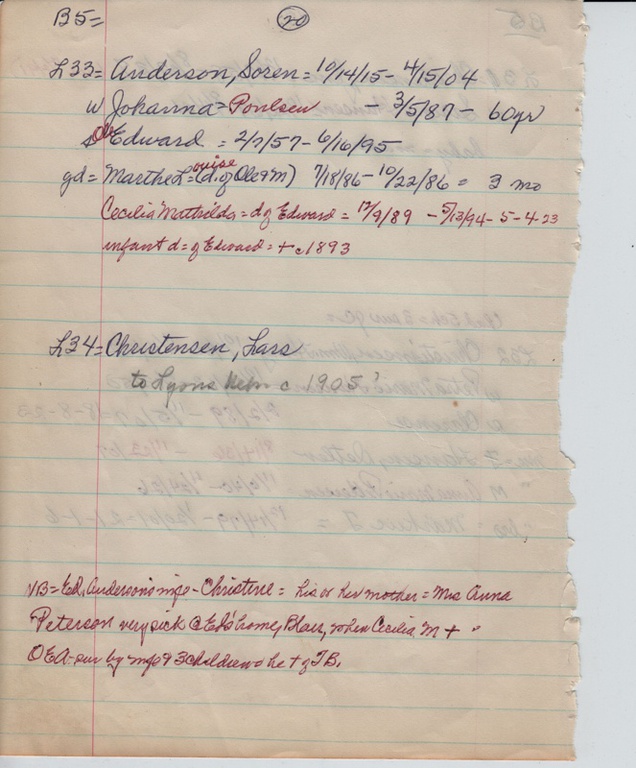 B5= 20
L33= Anderson, Soren = 10/14/15 - 4/15/04
w Johanna = Poulsen - 3/5/87 - 60yr
s Ole Edward = 2/7/57 - 6/16/95
gd = Marthe L= ouise (d. of Ole & M) 7/18/86 - 10/22/86 = 3 mo
Cecilia Mathilda = d of Edward = 12/9/89 - 5/13/94 - 5-4-23
infant d = of Edward = + c 1893
L34= Christensen, Lars
to Lyons Nebr c 1905?
NB = Ed, Anderson's wife - Christine = his or her mother = Mrs Anna
Peterson very sick @ Ed's home, Blair, when Cecilia M +
OEA - sur by wife & 3 children - he + of TB.